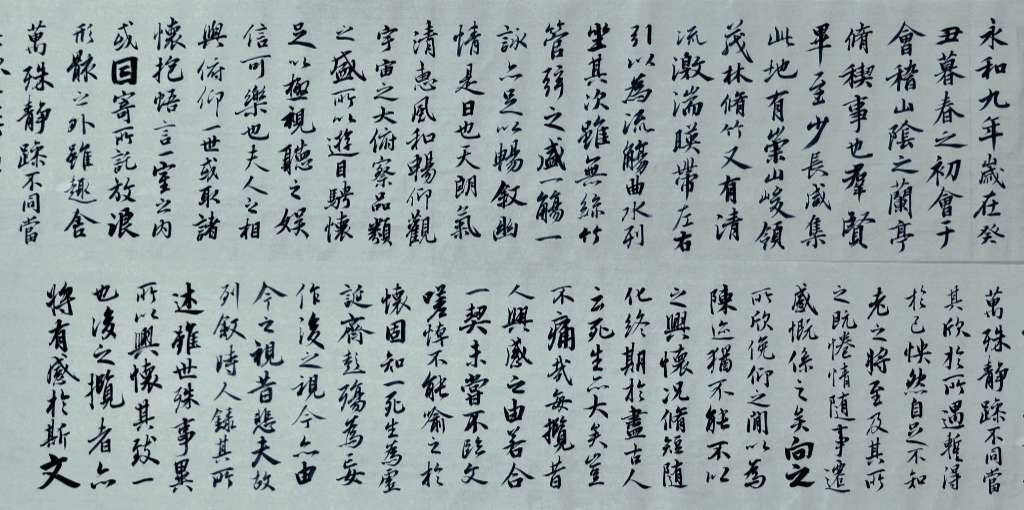 永和九年歲在癸
丑暮春之初會于
會稽山陰之蘭亭
脩稧事也羣賢
畢至少長咸集
此地有崇山峻領
茂林脩竹又有清
流激湍暎帶左右
引以為流觴曲水列
坐其次雖無絲竹
管弦之盛一觴一
詠亦足以暢敘幽
情是日也天朗氣
清惠風和暢仰觀
宇宙之大俯察品類
之盛所以遊目騁懷
足以極視聽之娛
信可樂也夫人之相
與俯仰一世或取諸
懷抱悟言一室之內
或因寄所託放浪
形骸之外雖趣舍
萬殊靜躁不同當
萬殊靜躁不同當
其欣於所遇暫得
於己怏然自足不知
老之將至及其所
之既惓情隨事遷
感慨係之矣向之
所欣俛仰之閒以為
陳迹猶不能不以
之興懷況脩短隨
化終期於盡古人
云死生亦大矣豈
不痛哉每攬昔
人興感之由若合
一契未嘗不臨文
嗟悼不能喻之於
懷固知一死生為虛
誕齊彭殤為妄
作後之視今亦由
今之視昔悲夫故
列敘時人錄其所
述雖世殊事異
所以興懷其致一
也後之攬者亦
將有感於斯文